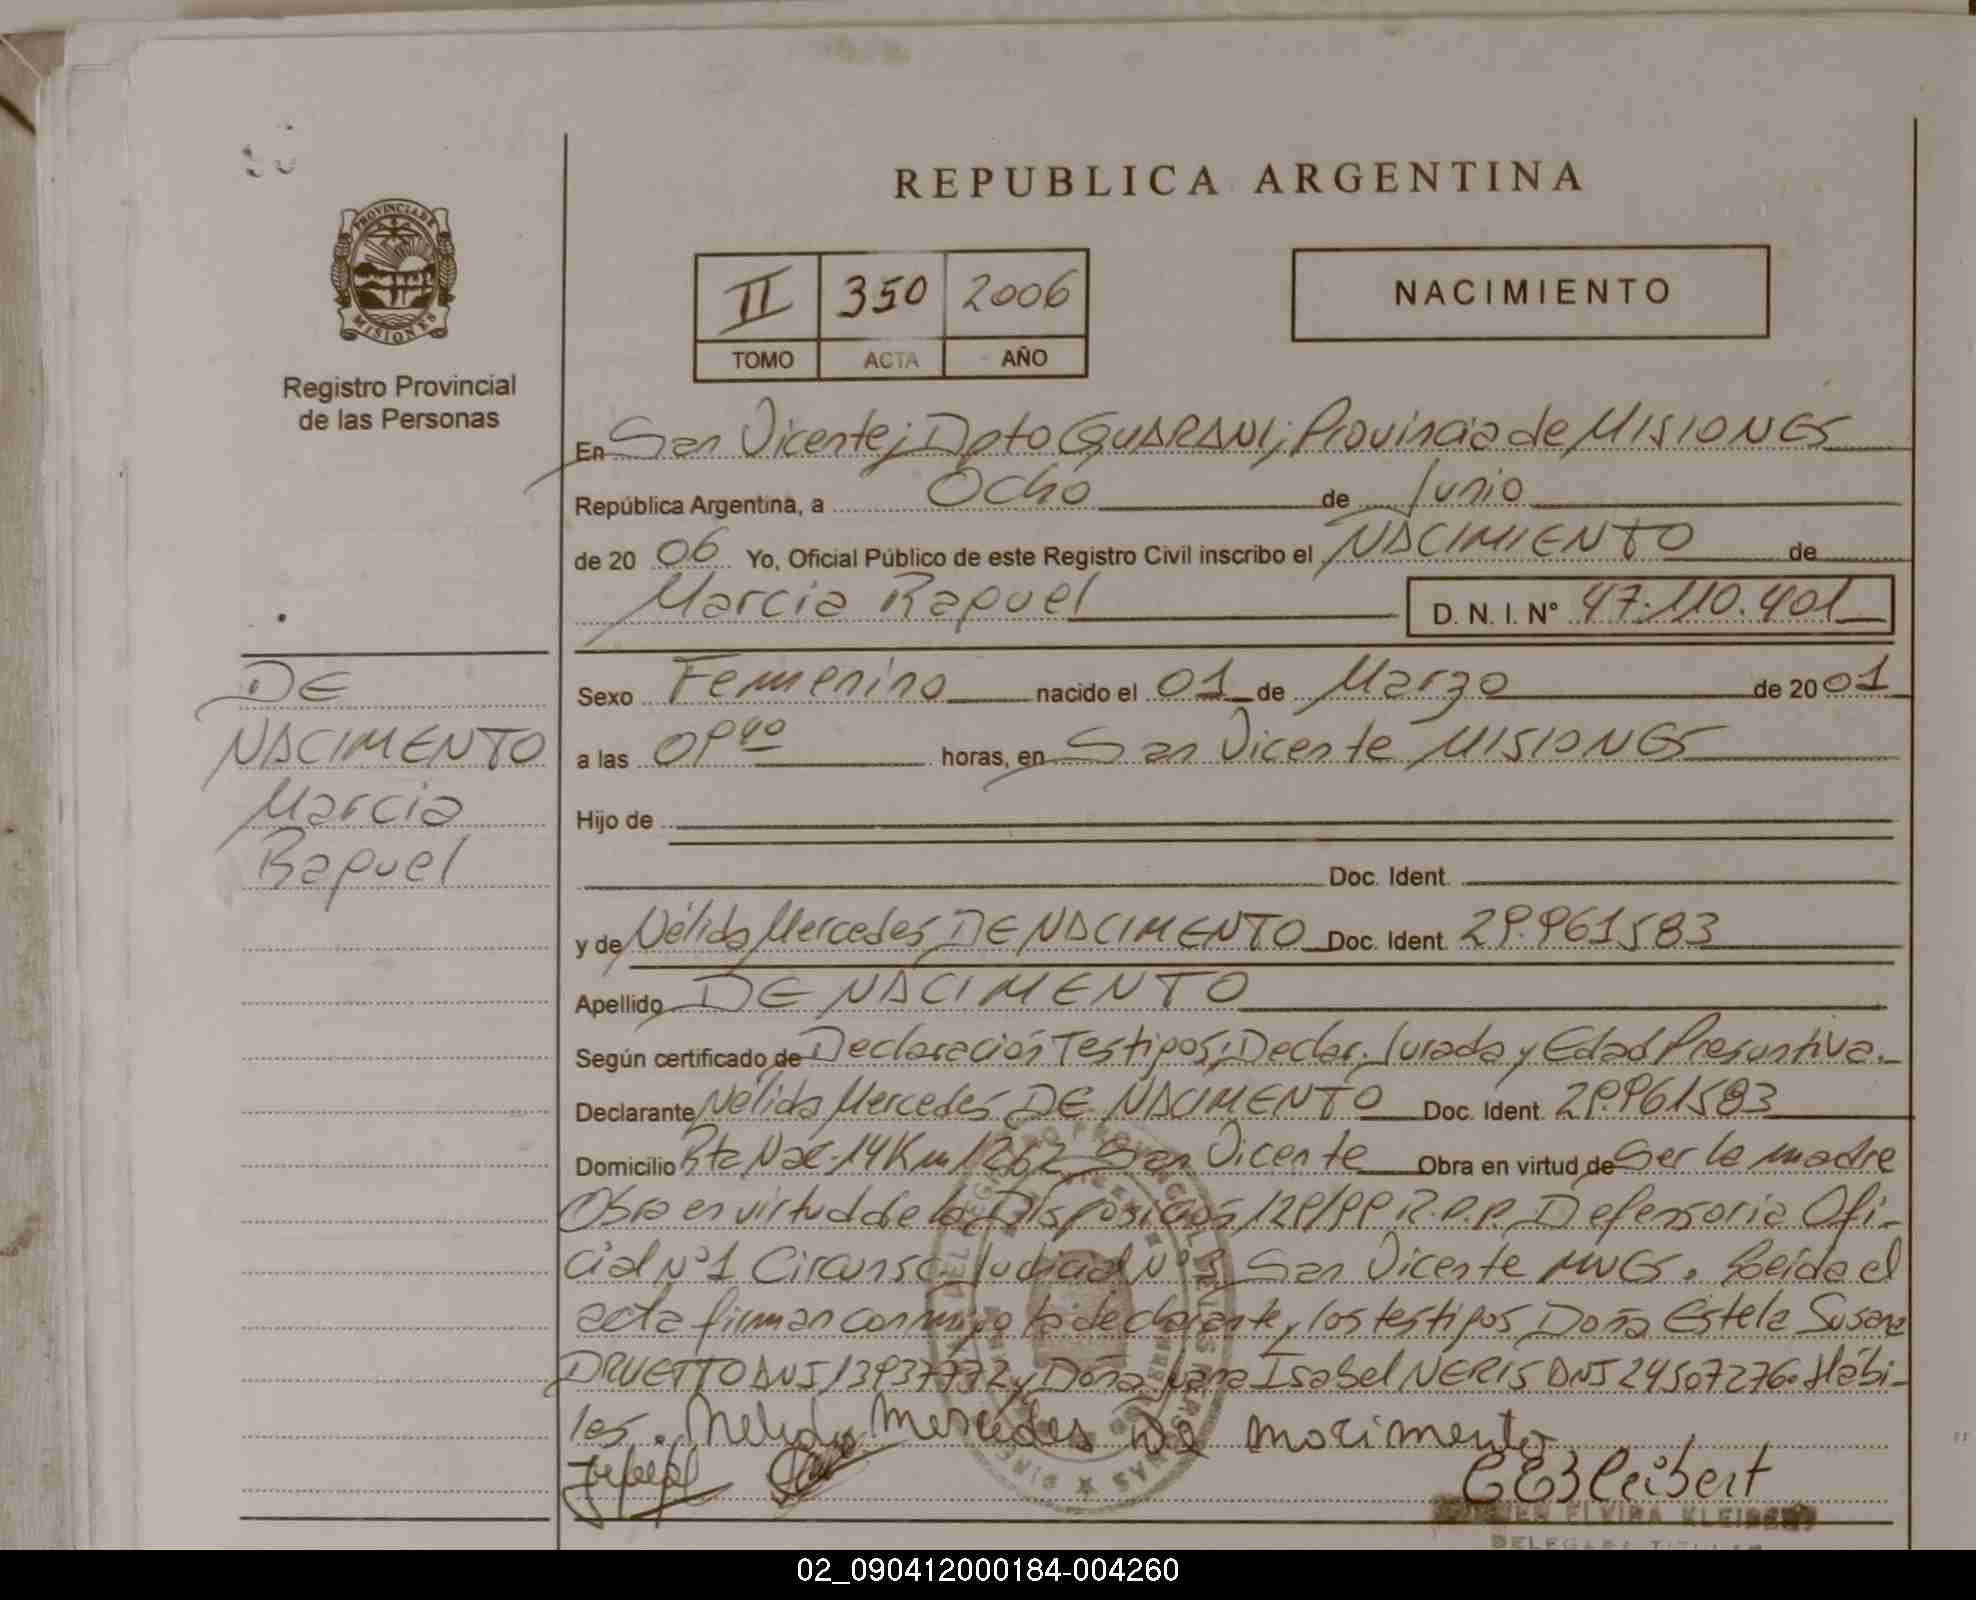 REPUBLICA ARGENTINA
PROVINCIA DE
MISIONES
Registro Provincial
de las Personas
II 350 2006
TOMO ACTA AÑO
NACIMIENTO
En San Vicente; Dpto GUARANI; Provincia de MISIONES
República Argentina, a Ocho de Junio
de 20 06 Yo, Oficial Público de este Registro Civil inscribo el NACIMIENTO de
Marcia Raquel D. N. I. Nº 47.110.401
DE
NACIMENTO
Marcia
Raquel
Sexo Femenino nacido el 01 de Marzo de 20 01
a las 09 40 horas, en San Vicente MISIONES
Hijo de
Doc. Ident.
y de Nélida Mercedes DE NACIMENTO Doc. Ident. 29.961583
Apellido DE NACIMENTO
Según certificado de Declaración Testigos; Declar. Jurada y Edad Presuntiva.
Declarante Nélida Mercedes DE NACIMENTO Doc. Ident. 29.961583
Domicilio Rta Nac. 14 Km 1262 San Vicente Obra en virtud de Ser la madre
Obra en virtud de la Disposición 129/99 R.P.P. Defensoria Ofi-
cial Nº1 Circunsc. Judicial Nº San Vicente MNES. Leída el
acta firman conmigo la declarante, los testigos Doña Estela Susana
DRUETTO DNI 13937772 y Doña Juana Isabel NERIS DNI 24507276. Hábi-
les. Nelida Mercedes De nacimento
CE3Kleibert
ELVIRA KLEIBERT
DELEGADA TITULAR
02_090412000184-004260